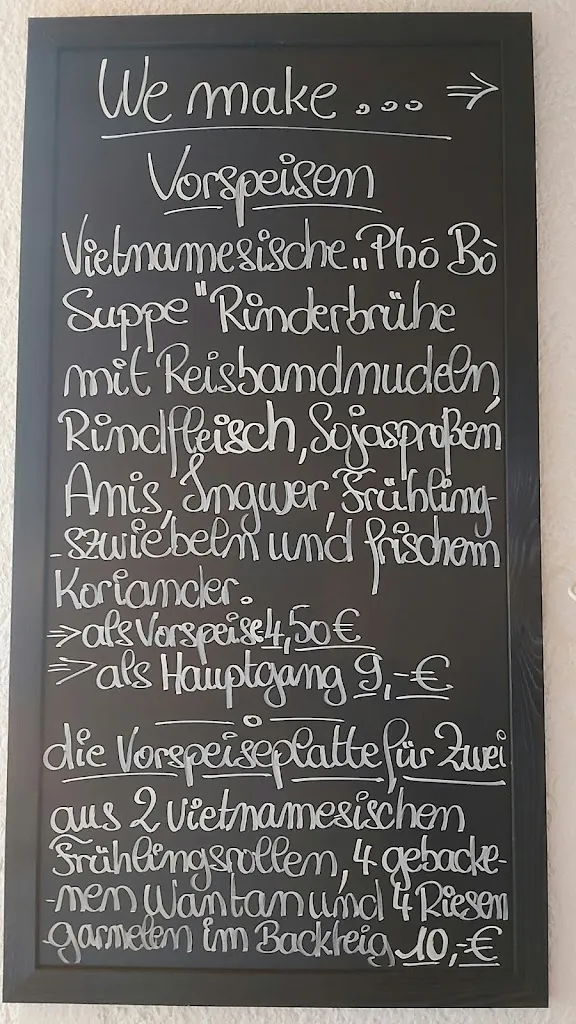 We make... ⇒
Vorspeisen
Vietnamesische „Phở Bò
Suppe" Rinderbrühe
mit Reisbandnudeln,
Rindfleisch, Sojasproßen
Anis, Ingwer, Frühling-
-szwiebeln und frischem
Koriander.
⇒ als Vorspeise 4,50 €
⇒ als Hauptgang 9,-€
die Vorspeiseplatte für Zwei
aus 2 vietnamesischen
Frühlingsrollen, 4 gebacke-
-nen Wantan und 4 Riesen
garnelen im Backteig 10,-€